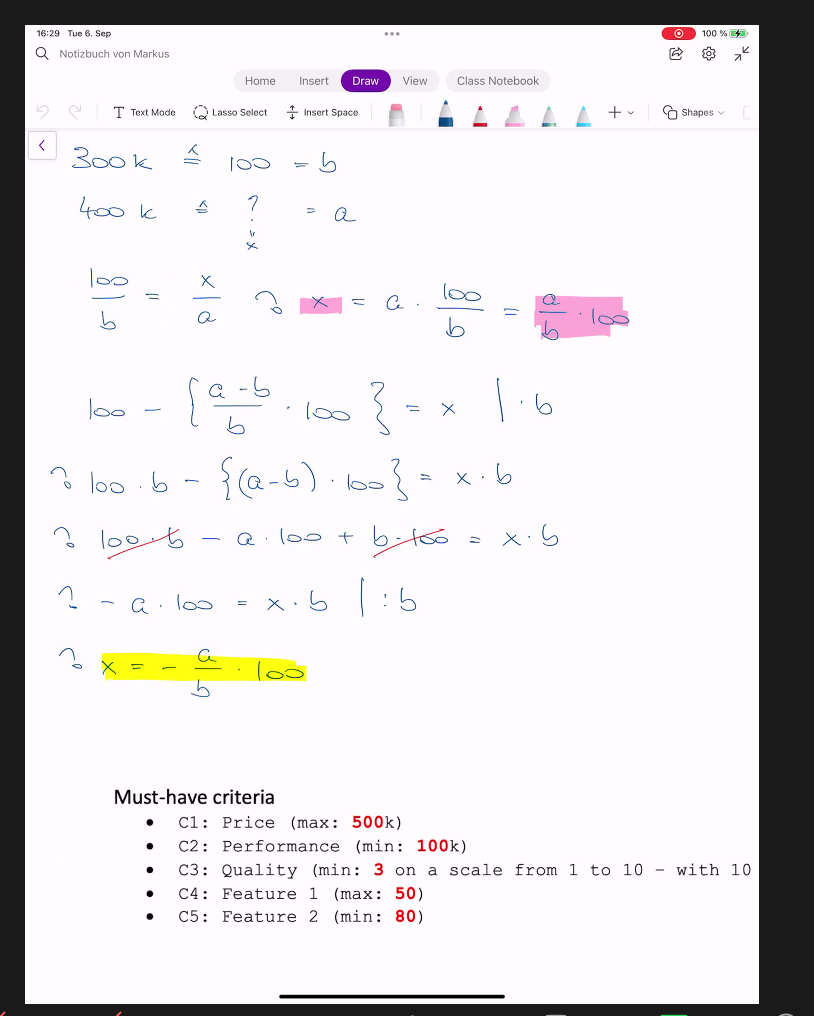 16:29 Tue 6. Sep 100 %
Notizbuch von Markus
Home Insert Draw View Class Notebook
Text Mode Lasso Select Insert Space Shapes
300k ≙ 100 = b
400k ≙ ? = a
"
x
100/b = x/a ⇒ x = a · 100/b = a/b · 100
100 - {(a-b)/b · 100} = x | · b
⇒ 100 · b - {(a-b) · 100} = x · b
⇒ 100 · b - a · 100 + b · 100 = x · b
⇒ - a · 100 = x · b | : b
⇒ x = - a/b · 100
Must-have criteria
• C1: Price (max: 500k)
• C2: Performance (min: 100k)
• C3: Quality (min: 3 on a scale from 1 to 10 – with 10
• C4: Feature 1 (max: 50)
• C5: Feature 2 (min: 80)